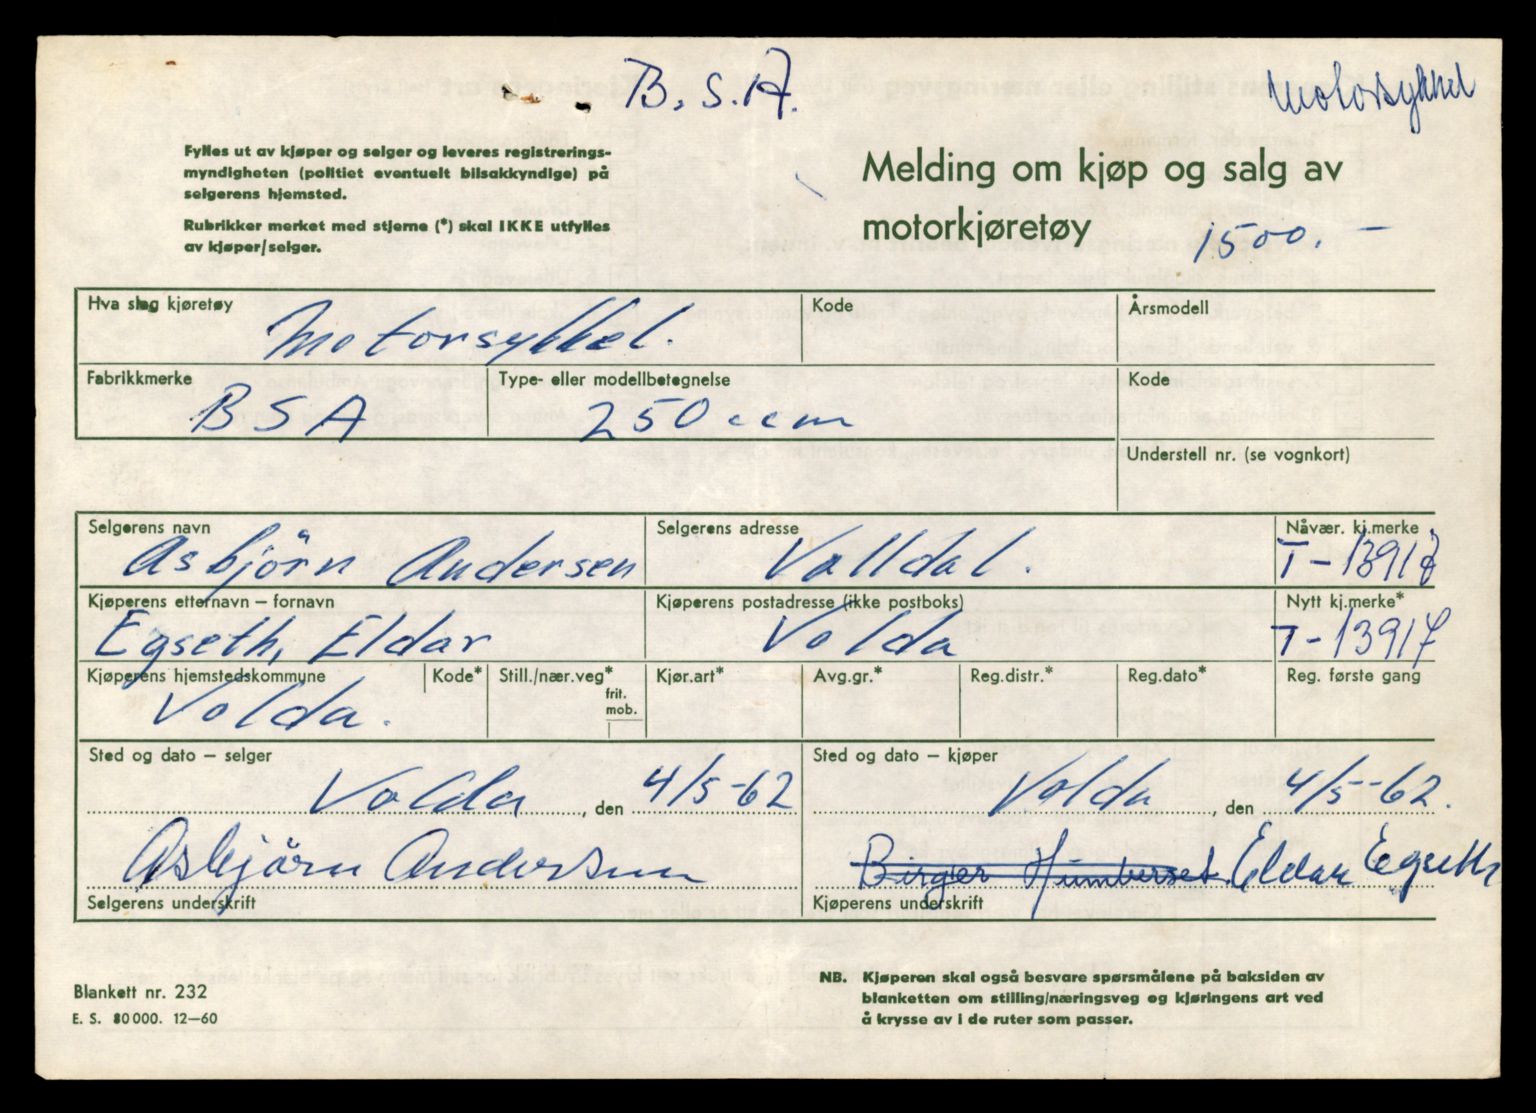 B.S.A.
Motorsykkel
Fylles ut av kjøper og selger og leveres registrerings-
myndigheten (politiet eventuelt bilsakkyndige) på
selgerens hjemsted.
Rubrikker merket med stjerne (*) skal IKKE utfylles
av kjøper/selger.
Melding om kjøp og salg av
motorkjøretøy
1500.-
Hva slag kjøretøy
Kode
Årsmodell
Motorsykkel.
Fabrikkmerke
Type- eller modellbetegnelse
Kode
BSA
250 ccm
Understell nr. (se vognkort)
Selgerens navn
Selgerens adresse
Nåvær. kj.merke
Asbjörn Andersen
Valldal.
T-13917
Kjøperens etternavn – fornavn
Kjøperens postadresse (ikke postboks)
Nytt kj.merke*
Egseth, Eldar
Volda
T-13917
Kjøperens hjemstedskommune
Kode*
Still./nær.veg*
frit.
mob.
Kjør.art*
Avg.gr.*
Reg.distr.*
Reg.dato*
Reg. første gang
Volda.
Sted og dato – selger
Sted og dato – kjøper
Volda, den 4/5-62
Volda, den 4/5-62.
Asbjörn Andersen
Birger Humberset. Eldar Egseth
Selgerens underskrift
Kjøperens underskrift
Blankett nr. 232
E. S. 80000. 12–60
NB. Kjøperen skal også besvare spørsmålene på baksiden av
blanketten om stilling/næringsveg og kjøringens art ved
å krysse av i de ruter som passer.